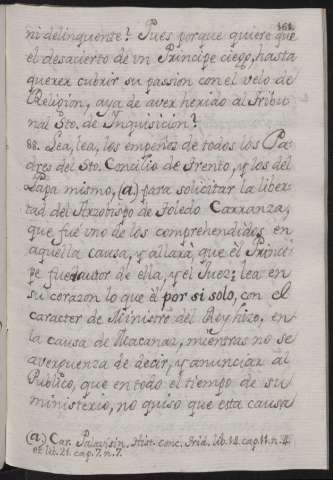 161.
ni delinquente? Pues porque quiere que
el desacierto de vn Principe ciego, hasta
querer cubrir su passion con el velo de
Religion, aya de aver herido al Tribu-
nal Sto. de Inquisicion?
88. Lea, lea, los empeños de todos los Pa-
dres del Sto. Concilio de Trento, y los del
Papa mismo, (a) para solicitar la liber-
tad del Arzobispo de Toledo Carranza,
que fue vno de los comprehendidos en
aquella causa, y allarà, que el Princi-
pe fue autor de ella, y el Juez: lea en
su corazon lo que èl por si solo, con el
caracter de Ministro del Rey hizo, en
la causa de Macanaz, mientras no se
averguenza de decir, y anunciar al
Publico, que en todo el tiempo de su
ministerio, no quiso que esta causa
(a.) Car. Palavisin. Hist. conc. Trid. lib. 14. cap. 11. n. 4.
et lib. 21. cap. 7. n. 7.